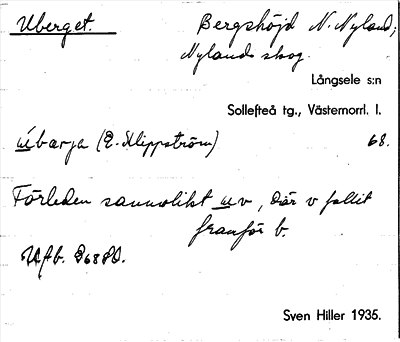 Uberget. Bergshöjd N. Nyland;
Nylands skog.
Långsele s:n
Sollefteå tg., Västernorrl. l.
úbarja (E. Klippström) 68.
Förleden sannolikt uv, där v fallit
framför b.
Sven Hiller 1935.